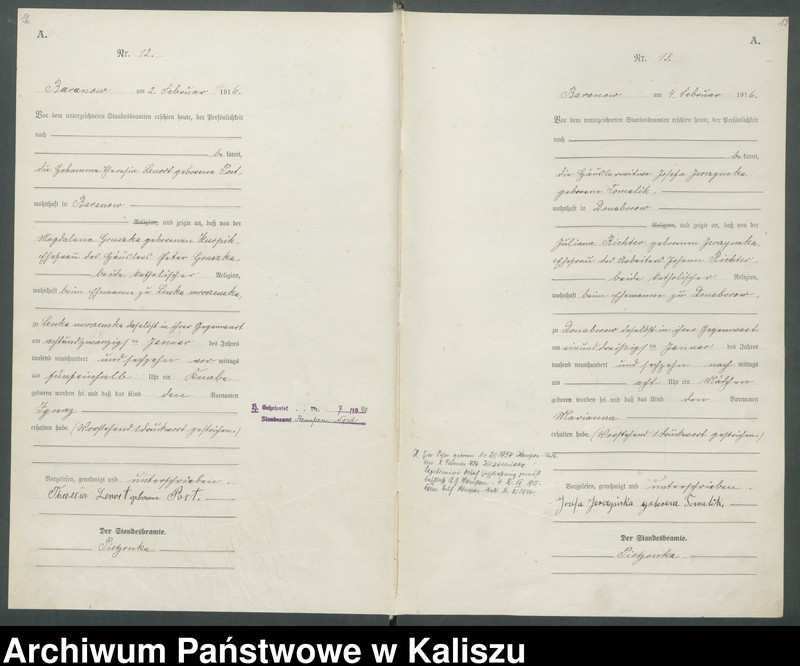 12.
A.
Nr. 12.
Baranow am 2. Februar 1916.
Vor dem unterzeichneten Standesbeamten erschien heute, der Persönlichkeit
nach
be kannt,
die Hebamme Theresia Lenort geborene Post.
wohnhaft in Baranow
Religion, und zeigte an, daß von der
Magdalena Gruszka geborenen Kurpik,
Ehefrau des Häuslers Peter Gruszka,
beide katholischer Religion,
wohnhaft beim Ehemanne zu Lenka mroczenska,
zu Lenka mroczenska daselbst in ihrer Gegenwart
am achtundzwanzigsten Januar des Jahres
tausend neunhundert und sechzehn vor mittags
um fünfeinhalb Uhr ein Knabe
geboren worden sei und daß das Kind den Vornamen
Ignaz
erhalten habe. (Vorstehend 1 Druckwort gestrichen.)
Vorgelesen, genehmigt und unterschrieben.
Lenort geborene Post.
Der Standesbeamte.
Pietzonka
Geheiratet Nr. 7/19
Standesamt Kempen
13
A.
Nr. 13.
Baranow am 4. Februar 1916.
Vor dem unterzeichneten Standesbeamten erschien heute, der Persönlichkeit
nach
be kannt,
die Häuslerwitwe Josefa
geborene
wohnhaft in Donaborow
Religion, und zeigte an, daß von der
Juliana Richter geborenen
Ehefrau des Arbeiters Johann Richter,
beide katholischer Religion,
wohnhaft beim Ehemanne zu Donaborow,
zu Donaborow daselbst in ihrer Gegenwart
am einunddreißigsten Januar des Jahres
tausend neunhundert und sechzehn nach mittags
um acht Uhr ein Mädchen
geboren worden sei und daß das Kind den Vornamen
Marianna
erhalten habe. (Vorstehend 1 Druckwort gestrichen.)
Vorgelesen, genehmigt und unterschrieben.
Josefa geborene
Der Standesbeamte.
Pietzonka
Archiwum Państwowe w Kaliszu